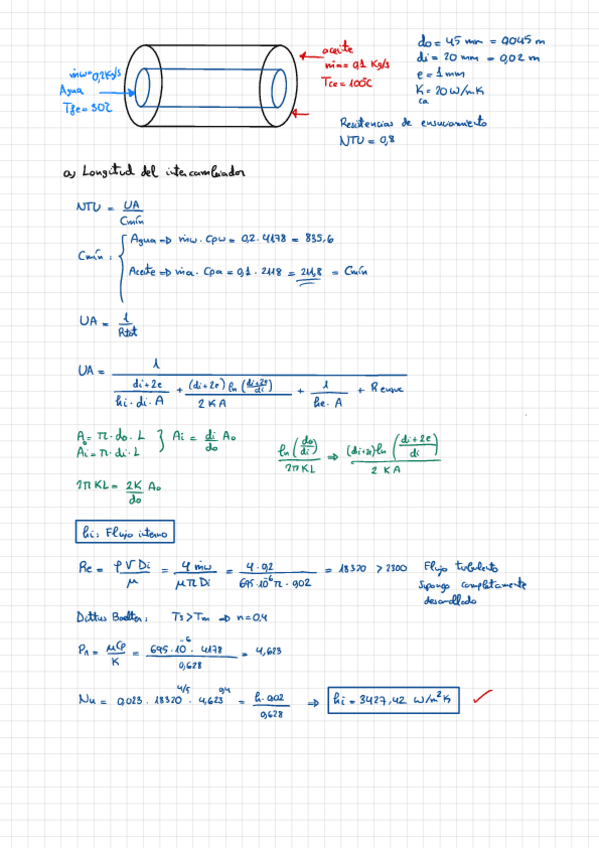 aceite
ṁa = 0,1 Kg/s
Tce = 100ºC
ṁw = 0,2 Kg/s
Agua
Tfe = 30ºC
do = 45 mm = 0,045 m
di = 20 mm = 0,02 m
e = 1 mm
K = 20 W/mK
ca
Resistencias de ensuciamiento
NTU = 0,8
a) Longitud del intercambiador
NTU = UA / Cmín
Cmín : { Agua => ṁw · Cpw = 0,2 · 4178 = 835,6
Aceite => ṁa · Cpa = 0,1 · 2118 = 211,8 = Cmín
UA = 1 / Rtot
UA = 1 / ( (di+2e) / (hi · di · A) + (di+2e) ln ((di+2e)/di) / (2KA) + 1 / (he · A) + Rensuc )
Ao = π · do · L } Ai = di/do Ao
Ai = π · di · L
ln (do/di) / (2πKL) => (di+2e) ln ((di+2e)/di) / (2KA)
2πKL = 2K/do Ao
hi: Flujo interno
Re = ρVDi / μ = 4ṁw / (μπDi) = 4 · 0,2 / (695 · 10⁻⁶ π · 0,02) = 18320 > 2300 Flujo turbulento
Supongo completamente
desarrollado
Dittus Boelter: Ts > Tm => n = 0,4
Pr = μCp / K = 695 · 10⁻⁶ · 4178 / 0,628 = 4,623
Nu = 0,023 · 18320^4/5 · 4,623^0,4 = h · 0,02 / 0,628 => hi = 3427,42 W/m²K ✓